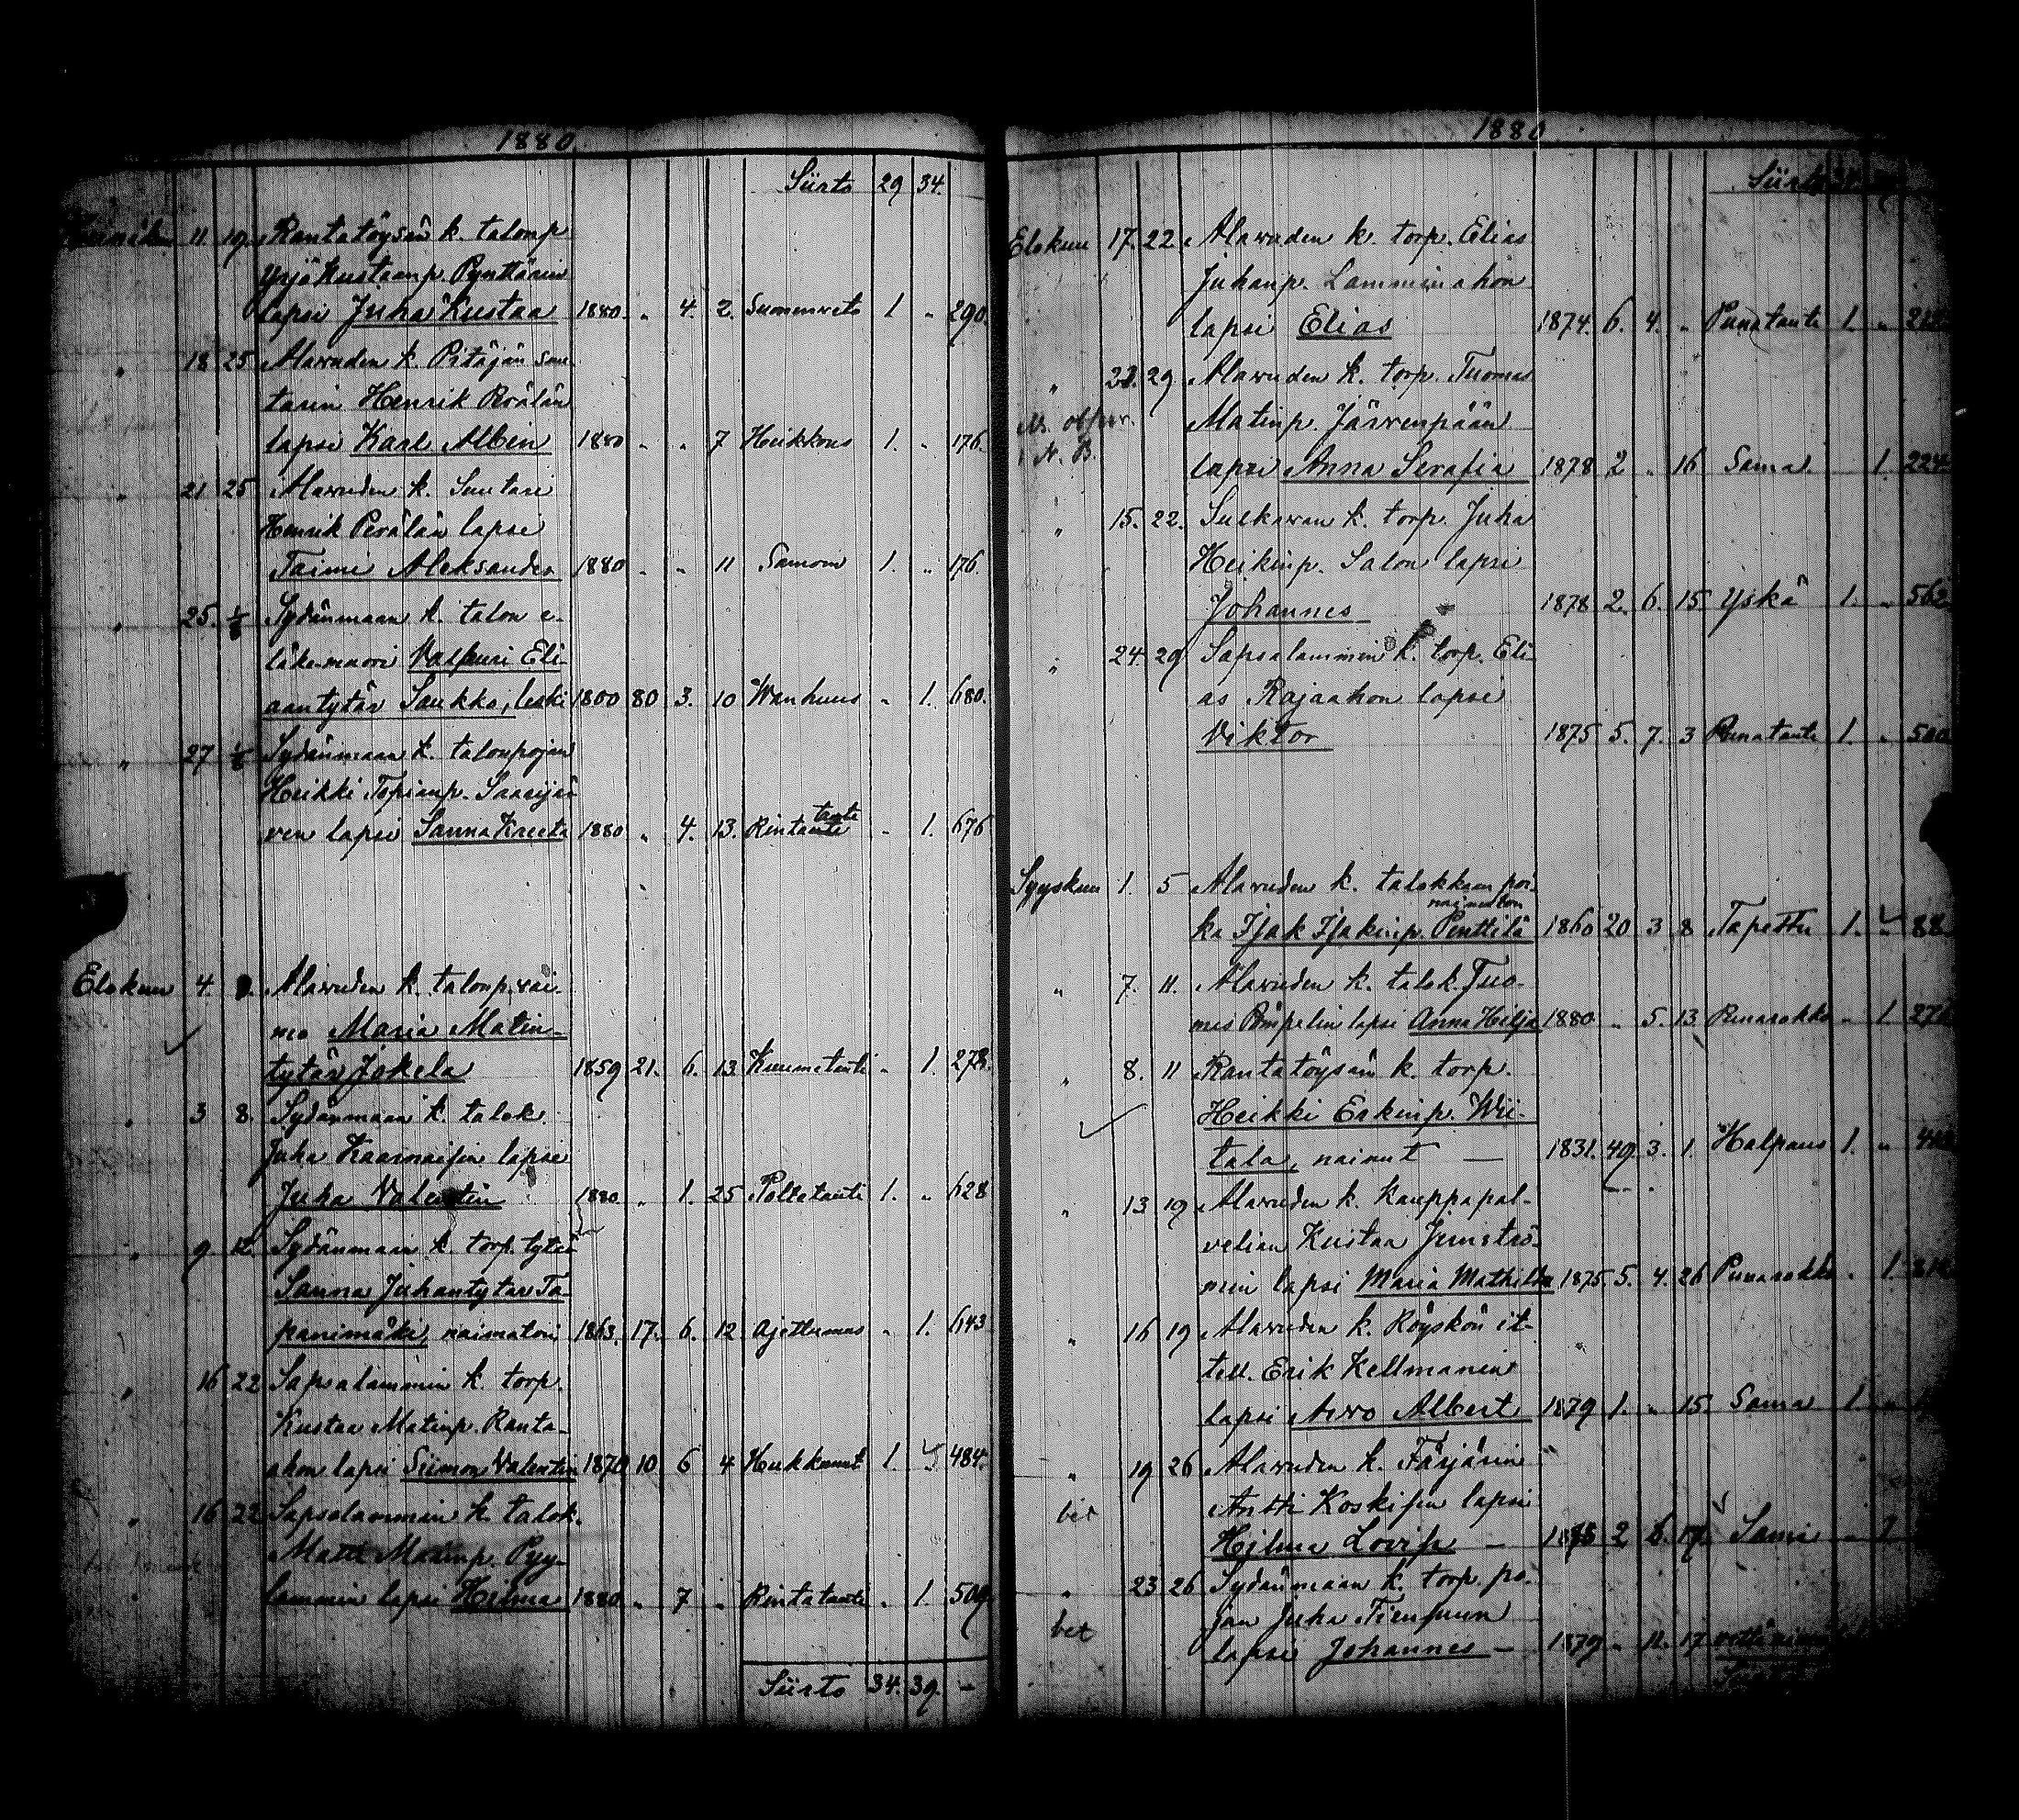 1880
Siirto 29 34.
11. 19. Rantatöysän k. talonp.
Yrjö Kustaanp. Pynttärin
lapsi Juha Kustaa 1880. „ 4. 2. Suonenveto 1 „ 290.
„ 18 25 Alavuden k. Pitäjän suu-
tarin Henrik
lapsi Karl Albin 1880 „ „ 7 Heikkous 1. „ 176.
„ 21 25 Alavuden k. Suutari
Henrik Perälän lapsi
Taimi Aleksander 1880 „ „ 11 Samoin 1. „ 176.
„ 25. 1/8 Sydänmaan k. talon e-
läkemuori Valpuri Eli-
aantytär Saukko, leski 1800 80 3. 10 Wanhuus „ 1. 680.
„ 27 1/8 Sydänmaan k. talonpojan
Heikki Topianp. Saarijär-
ven lapsi Sanna Kreeta 1880 „ 4. 13. Rintatauti „ 1. 676
Elokuu 4. 8. Alavuden k. talonp. vai-
mo Maria Matin-
tytär Jokela 1859 21. 6. 13 Kuumetauti „ 1. 278.
„ 3 8. Sydänmaan k. talok.
Juha Kaarnaisen lapsi
Juha Valentin 1880. „ 1. 25 Polttotauti 1. „ 628
„ 9 12. Sydänmaan k. torp. tytär
Sanna Juhantytär Ta-
panimäki, naimatoin 1863. 17. 6. 12 Ajettumus „ 1. 643
„ 16 22 Sapsalammin k. torp.
Kustaa Matinp. Ranta-
ahon lapsi Siimon Valentin 1870 10 6 4 Hukkunut 1. „ 484.
„ 16 22 Sapsalammin k. talok.
Matti Matinp. Pyy-
lammin lapsi Hilma 1880. „ 7 „ Rintatauti „ 1. 509
Siirto 34. 39. –
1880
Siirto
Elokuu 17. 22. Alavuden k. torp. Elias
Juhanp. Lamminahon
lapsi Elias 1874. 6. 4. „ Punatauti 1. „
„ 29 Alavuden k. torp. Tuomas
Matinp. Järvenpään
N. B. lapsi Anna Serafia 1878 2 „ 16 Sama 1. 224
„ 15. 22. Sulkavan k. torp. Juha
Heikinp. Salon lapsi
Johannes 1878 2. 6. 15 Yskä 1. „ 562
„ 24. 29 Sapsalammin k. torp. Eli-
as Rajaahon lapsi
Viktor 1875 5. 7. 3 Punatauti 1. „
Syyskuu 1. 5 Alavuden k. talokkaan poi-
naimaton
ka Isak Isakinp. Penttilä 1860 20 3 8 Tapettu 1. „ 88
„ 7. 11. Alavuden k. talok. Tuo-
mas Pimpelin lapsi Anna Hilja 1880 „ 5. 13 Punarokko „ 1.
„ 8. 11 Rantatöysän k. torp.
Heikki Erkinp. Wii-
tala, nainut — 1831. 49. 3. 1. Halpaus 1. „
„ 13 19 Alavuden k. Kauppapal-
velian Kustaa
lapsi Maria Mathilda 1875. 5. 4. 26 Punarokko „ 1.
„ 16 19 Alavuden k. Röyskön it-
tell. Erik Kellmanin
lapsi Arvo Albert 1879 1. „ 15. Sama 1.
„ 19 26 Alavuden k. Färjärin
Antti Koskisen lapsi
Hilma Lovisa – 2 17. Sama
„ 23 26 Sydänmaan k. torp. po-
jan Juha lapsi
Johannes – 1879 „ 11. 17